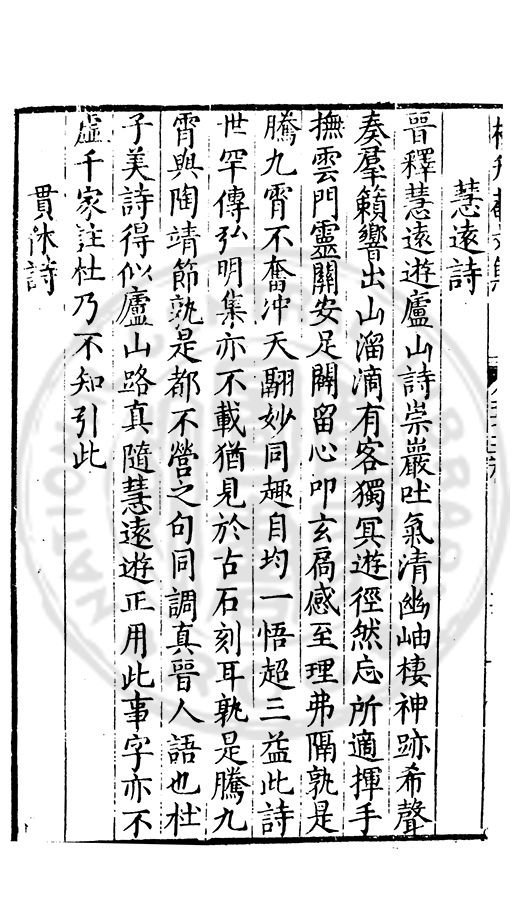 慧遠詩
晉釋慧遠遊廬山詩崇巖吐氣清幽岫棲神跡希聲
奏羣籟響出山溜滴有客獨冥遊徑然忘所適揮手
撫雲門靈關安足闢留心叩玄扃感至理弗隔孰是
騰九霄不奮冲天翮妙同趣自均一悟超三益此詩
世罕傳弘明集亦不載猶見於古石刻耳孰是騰九
霄與陶靖節孰是都不營之句同調真晉人語也杜
子美詩得似廬山路真隨慧遠遊正用此事字亦不
虛千家註杜乃不知引此
貫休詩